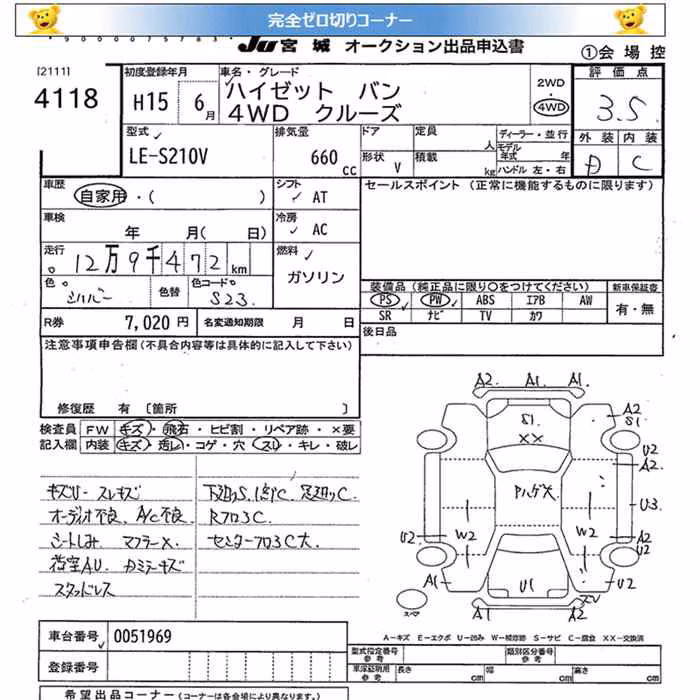 完全ゼロ切りコーナー
9000075783
JU 宮城 オークション出品申込書
①会場控
[2111]
4118
初度登録年月
H15 6月
車名・グレード
ハイゼット バン
4WD クルーズ
2WD
4WD
評価点
3.5
外装 内装
D C
型式
LE-S210V
排気量
660 cc
ドア
形状 V
定員 人
積載 kg
ディーラー・並行
モデル年式 年
ハンドル 左・右
車歴
自家用・( )
シフト
AT
セールスポイント (正常に機能するものに限ります)
車検
年 月( 日)
冷房
AC
走行
12万9千472km
燃料
ガソリン
色
シルバー
色替
色コード
S23
装備品 (純正品に限り○をつけてください)
PS PW ABS エアB AW
SR ナビ TV カワ
新車保証書
有・無
R券 7,020円
名変通知期限 月 日
後日品
注意事項申告欄(不具合内容等は具体的に記入して下さい)
修復歴 有 [箇所 ]
検査員 FW キズ・飛石・ヒビ割・リペア跡・×要
記入欄 内装 キズ・汚れ・コゲ・穴・スレ・キレ・破レ
キズU スレキズ
オーディオ不良、A/C不良
シートしみ マフラーX
荷室AU
スタッドレス
Rフロ3C
センターフロ3C大
A2 A1 A1
S1
XX
A2
S1
U2
A2
U3
A2
U2
U2
W2
W2
U2
A1
U1
A1
A2
スペア
A-キズ E-エクボ U-凹み W-補修跡 S-サビ C-腐食 XX-交換済
車台番号 0051969
登録番号
型式指定番号
参考
類別区分番号
参考
車庫証明用
参考
長さ cm
幅 cm
高さ cm
希望出品コーナー (コーナーは各会場により異なります。)